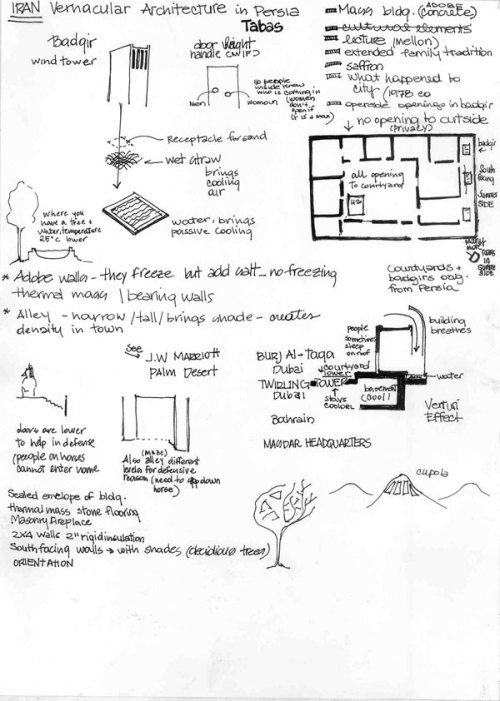 IRAN Vernacular Architecture in Persia
Tabas
Mass bldg. (concrete)
ADOBE
cultural elements
lecture (mellon)
extended family tradition
saffron
what happened to
city / 1978 EQ
operable openings in badgir
Badgir
wind tower
door
handle
so people
inside know
who is coming in
(women
don't
open if
it is a man)
men
woman
Receptacle for sand
wet straw
brings
cooling
air
no opening to outside
(privacy)
all opening
to courtyard
badgir
South
facing
SIDE
SIDE
where you
have a tree +
water, temperature
25°c lower
water, brings
passive cooling
courtyards +
badgirs orig.
from Persia
* Adobe walls - they freeze but add salt - no freezing
thermal mass / bearing walls
* Alley - narrow / tall / brings shade - creates
density in town
see
J.W MARRIOTT
PALM Desert
people
sometimes
sleep
on roof
building
breathes
BURJ Al-Taqa
Dubai
courtyard
lower
TWIRLING TOWER
Dubai
stays
cooler
basement
(cool)
water
Bahrain
Venturi
Effect
MASDAR HEADQUARTERS
doors are lower
to help in defense
(people on horses
cannot enter home
(maze)
Also alley different
levels for defensive
reason (need to step down
horse)
cupola
Sealed envelope of bldg.
thermal mass stone flooring
Masonry fireplace
2x4 walls 2" rigid insulation
South facing walls → with shades (decidious trees)
ORIENTATION